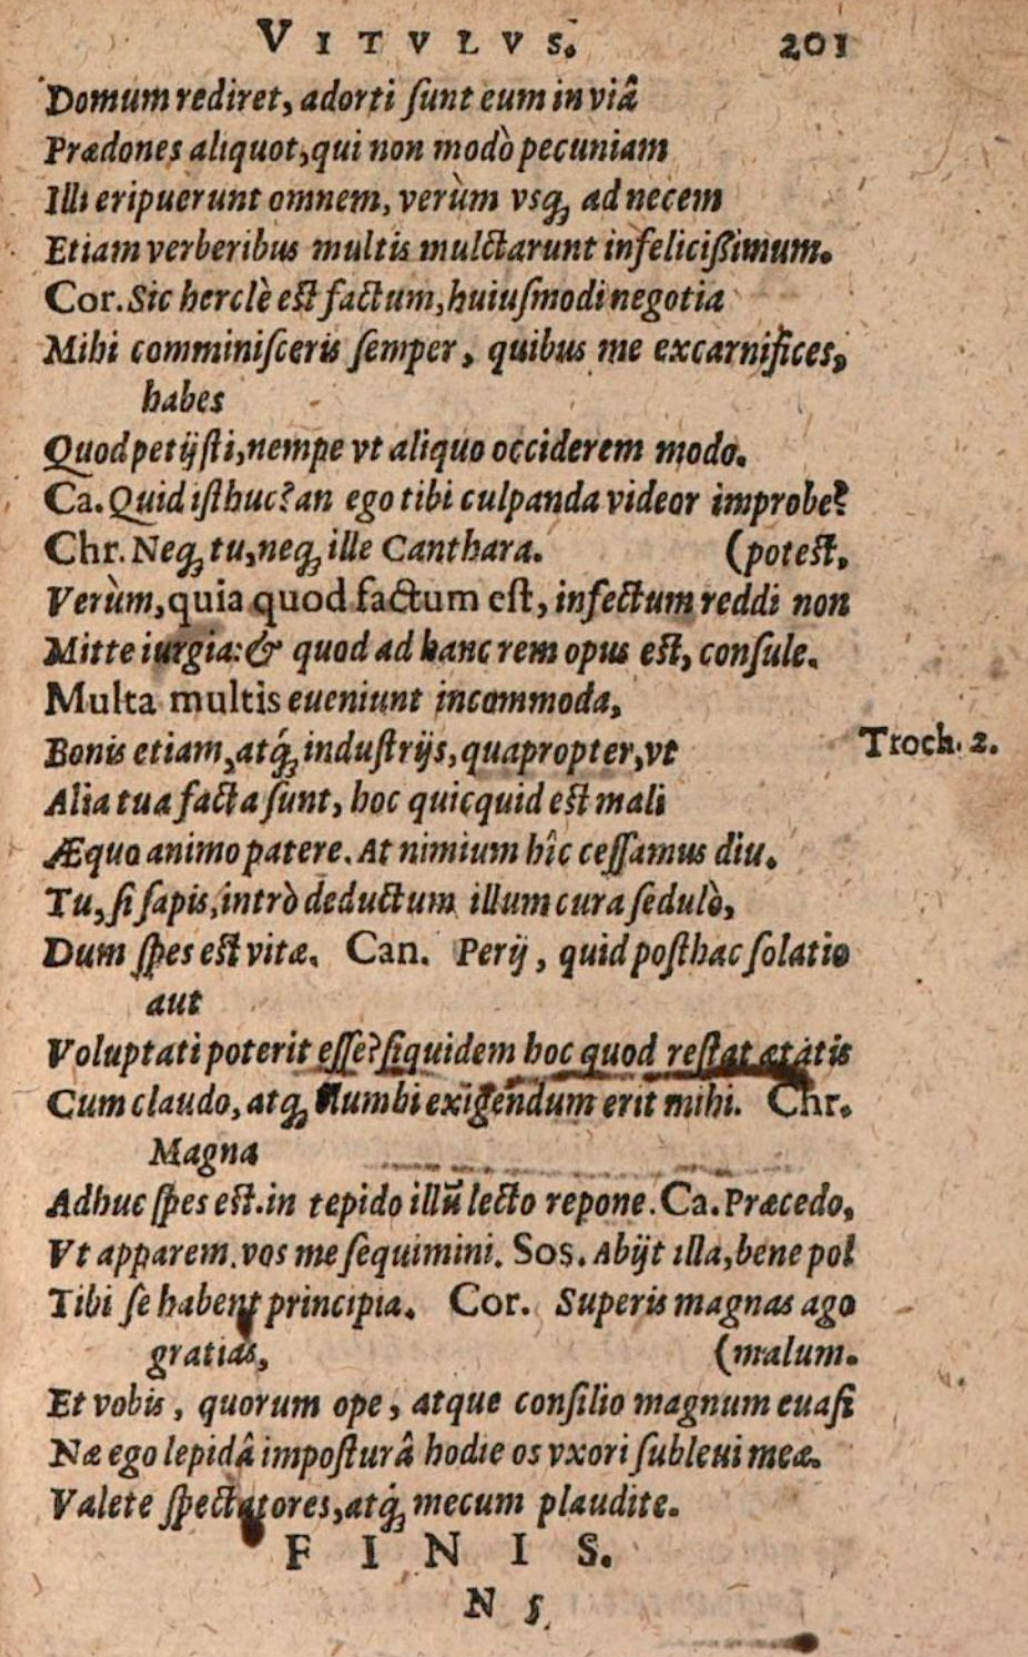 VITVLVS. 201
Domum rediret, adorti ſunt eum in viâ
Prædones aliquot, qui non modò pecuniam
Illi eripuerunt omnem, verùm vsq́ꝫ ad necem
Etiam verberibus multis mulctarunt infelicißimum.
Cor. Sic herclè est factum, huiuſmodi negotia
Mihi comminiſceris ſemper, quibus me excarnifices,
habes
Quod petijſti, nempe vt aliquo occiderem modo.
Ca. Quid iſthuc? an ego tibi culpanda videor improbe?
Chr. Neqꝫ tu, neqꝫ ille Canthara. (potest,
Verùm, quia quod factum eſt, infectum reddi non
Mitte iurgia: & quod ad hanc rem opus est, conſule.
Multa multis eueniunt incommoda,
Bonis etiam, atq́ꝫ induſtrijs, quapropter, vt
Troch. 2.
Alia tua facta ſunt, hoc quicquid est mali
Æquo animo patere. At nimium hîc ceſſamus diu.
Tu, ſi ſapis, intrò deductum illum cura ſedulò,
Dum ſpes est vitæ. Can. Perij, quid poſthac ſolatio
aut
Voluptati poterit eſſe? ſiquidem hoc quod reſtat ætatis
Cum claudo, atqꝫ flumbi exigendum erit mihi. Chr.
Magna
Adhuc ſpes est. in tepido illū lecto repone. Ca. Præcedo,
Vt apparem. vos me ſequimini. Sos. Abijt illa, bene pol
Tibi ſe habent principia. Cor. Superis magnas ago
gratias, (malum.
Et vobis, quorum ope, atque conſilio magnum euaſi
Næ ego lepidâ impoſturâ hodie os vxori ſubleui meæ.
Valete ſpectatores, atq́ꝫ mecum plaudite.
FINIS.
N 5